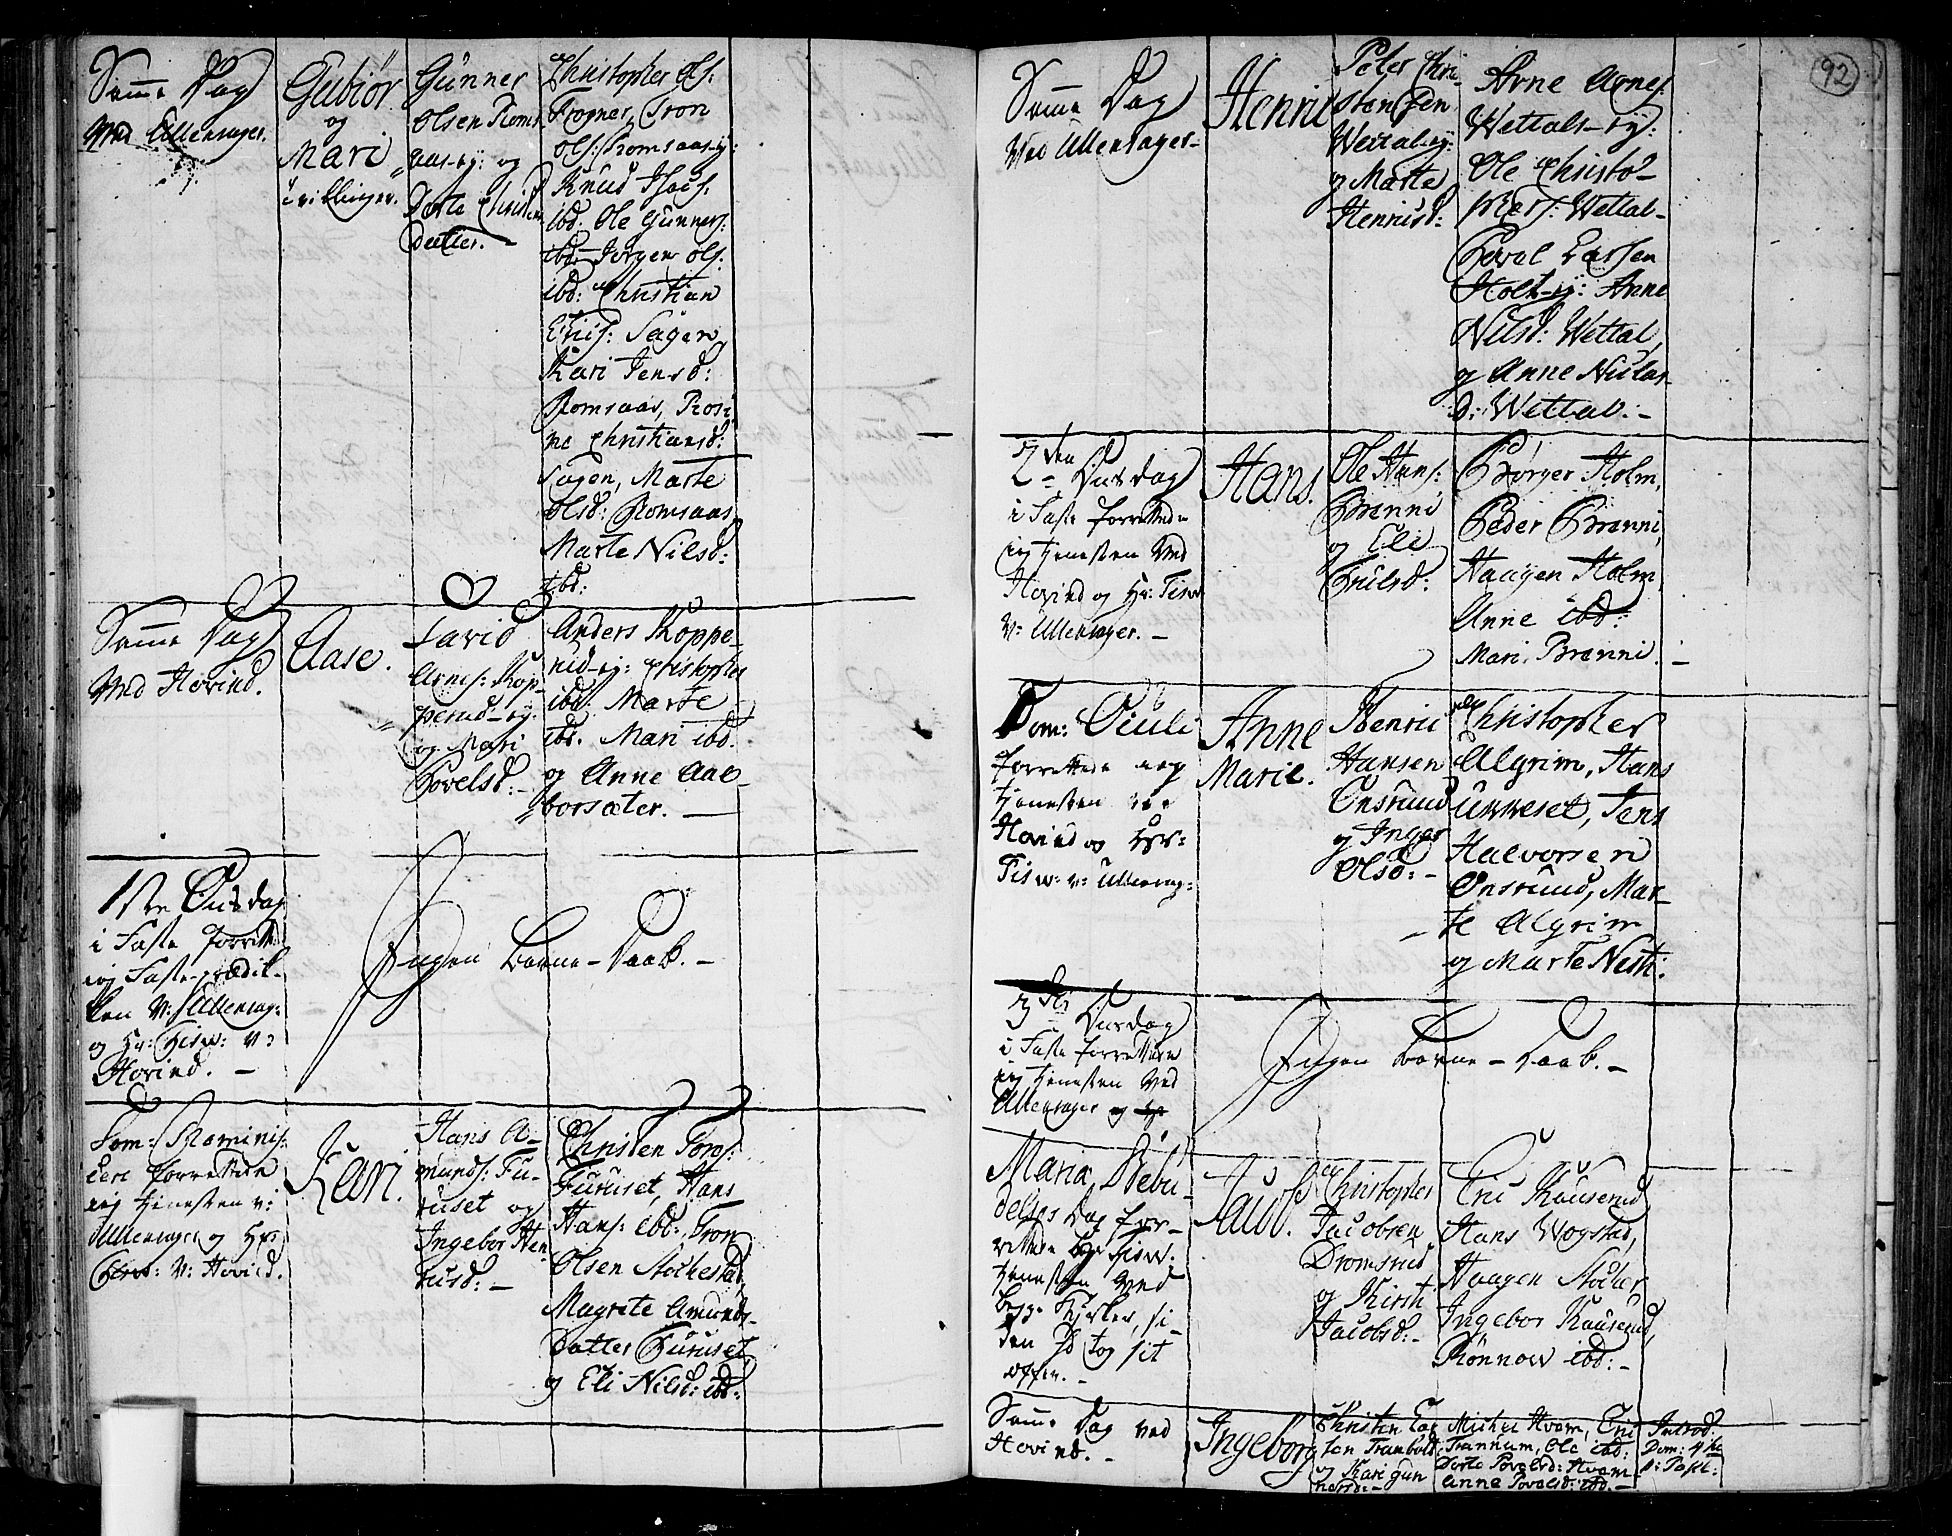 Samme Dag
Ved Ullensager.
Gubiør
og
Mari
tvillinger.
Gunner
Olsen Roms-
aas-ej: og
Dorte Christens
datter.
Christopher Ols:
Frogner, Tron
Ols: Romsaas-ej:
Knud
ibd. Ole Gunners:
ibd. Jørgen Ols:
ibd: Christian
Sagen,
Kari Jensd:
Romsaas, Rosi-
ne Christiansd:
Sagen, Marte
Olsd: Romsaas
Marte Nilsd:
ibd:
Samme Dag
Ved Hovind.
Aase.
David
Arnes: Kop-
perud-ej:
og Mari
Povelsd:
Anders Koppe-
rud-ej: Christopher
ibd. Marte
ibd. Mari ibd.
og Anne Aal-
borsæter.
1ste Onsdag
i Faste forrettede
jeg Faste-prædik-
ken v: Ullensag:
og Hr: v:
Hovind.
Ingen Børne-Daab.
Dom: Reminis-
cere forrettede
jeg tienesten v:
Ullensager og Hr:
v: Hovind.
Kari.
Hans A-
munds: Fu-
ruset og
Ingebor Hen-
ricsd:
Christen Tors:
Furuset, Hans
Hans: ibd: Tron
Olsen Mochestad,
Magrete Amunds-
datter Furuset
og Eli Nilsd: ibd:
92
Samme Dag
Ved Ullensager
Henric
Peter Chri-
stensen
Wettal-ej:
og Marte
Henricsd:
Arne Arnes:
Wettals-ej:
Ole Christo-
phers: Wettal-
Povel Larsen
Holt-ej: Anne
Nilsd: Wettal,
og Anne Niclas-
d: Wettal.
2den Onsdag
i Faste forrettede
jeg tienesten Ved
Hovind og Hr:
v: Ullensager.
Hans.
Ole Hans:
Brænni
og Eli
Truelsd:
Børger Holm,
Peder Brænni,
Haagen Holm
Anne ibd:
Mari Brænni.
Dom: Oculi
forrettede jeg
tienesten ved
Hovind og Hr:
v: Ullensag:
Anne
Marie.
Henric
Hansen
Onsrud
og Inger
Olsd:
Christopher
Algrim, Hans
Ukkeset, Jens
Halvorsen
Onsrud, Mar-
te Algrim
og Marte Nesh:
3die Onsdag
i Faste forrettede
jeg tienesten Ved
Ullensager og Hr
Ingen Børne-Daab.
Maria Bebu-
delses Dag for-
rettede Hr:
tienesten Ved
begge Kirker, si-
den Jd tog sit
offer.
Jacob.
Christopher
Jacobsen
Dromsrud
og Kirsti
Jacobsd:
Eric Kauserud
Hans Wogstad,
Haagen Mocher,
Ingebor Kauserud,
Rønnow ibd:
Samme Dag ved
Hovind.
Ingeborg
Christen Lar-
sen Trambolt
og Kari Gun-
nersd:
Michel Hvam, Eric
Trannum, Ole ibd:
Dorte Povelsd: Hvam
Anne Povelsd: ibd.
Introd:
Dom: 4de
p: Pask: